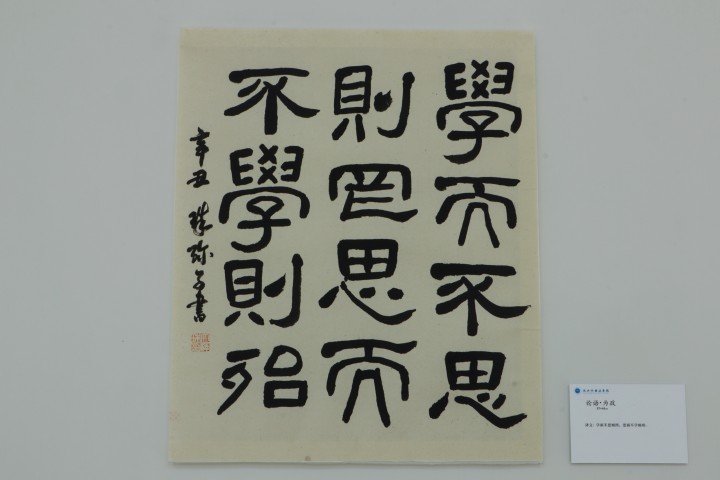 學而不思
則罔思而
不學則殆
辛丑 珠 書
论语·为政
释文：学而不思则罔，思而不学则殆。